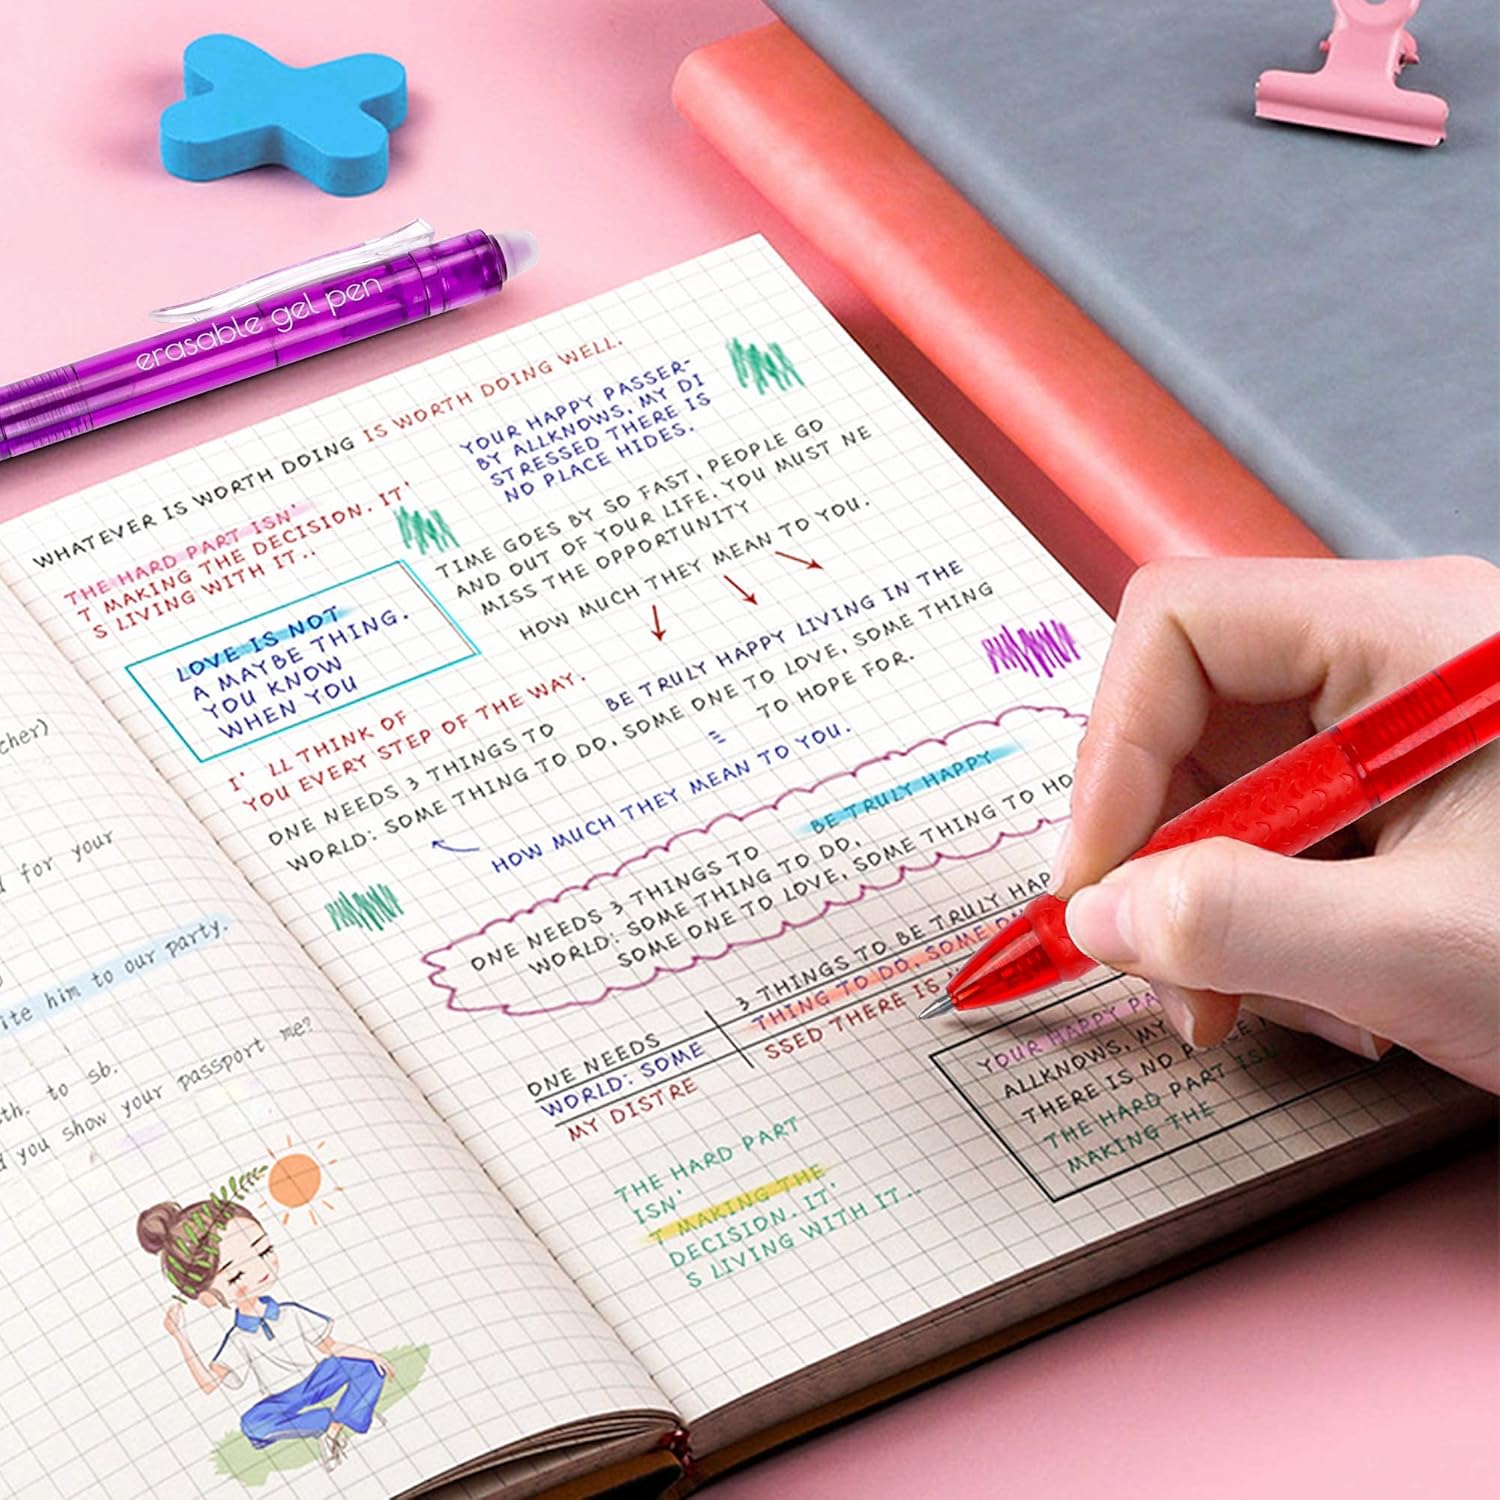 erasable gel pen
WHATEVER IS WORTH DOING IS WORTH DOING WELL.
THE HARD PART ISN'
T MAKING THE DECISION. IT'
S LIVING WITH IT..
YOUR HAPPY PASSER-
BY ALLKNOWS, MY DI
STRESSED THERE IS
NO PLACE HIDES.
TIME GOES BY SO FAST, PEOPLE GO
AND OUT OF YOUR LIFE. YOU MUST NE
MISS THE OPPORTUNITY
HOW MUCH THEY MEAN TO YOU.
LOVE IS NOT
A MAYBE THING.
YOU KNOW
WHEN YOU
I' LL THINK OF
YOU EVERY STEP OF THE WAY.
BE TRULY HAPPY LIVING IN THE
ONE NEEDS 3 THINGS TO
WORLD: SOME THING TO DO, SOME ONE TO LOVE, SOME THING
TO HOPE FOR.
HOW MUCH THEY MEAN TO YOU.
BE TRULY HAPPY
ONE NEEDS 3 THINGS TO
WORLD: SOME THING TO DO,
SOME ONE TO LOVE, SOME THING TO HO
3 THINGS TO BE TRULY HAP
ONE NEEDS
THING TO DO, SOME ON
WORLD: SOME
SSED THERE IS
MY DISTRE
YOUR HAPPY PA
ALLKNOWS, MY
THERE IS NO PLACE
THE HARD PART ISN
MAKING THE
THE HARD PART
ISN'
T MAKING THE
DECISION. IT'
S LIVING WITH IT..
cher)
for your
ite him to our party.
th. to sb.
you show your passport me?